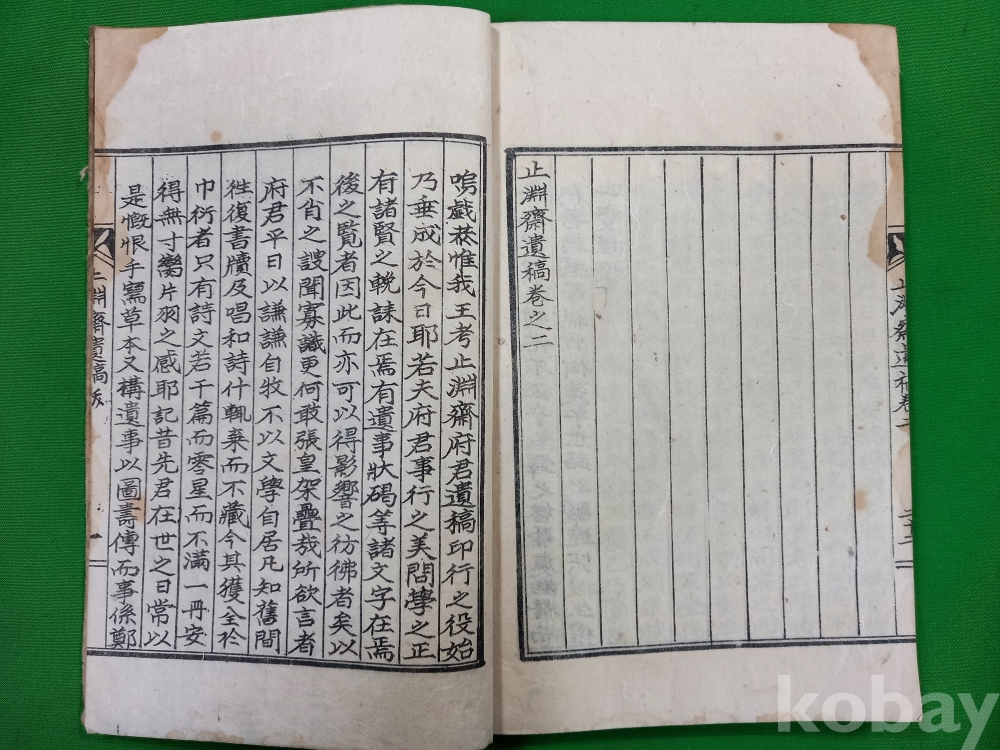 止淵齋遺稿卷之二
嗚戲恭惟我王考止淵齋府君遺稿印行之役始
乃垂成於今日耶若夫府君事行之美問學之正
有諸賢之輓誄在焉有遺事狀碣等諸文字在焉
後之覽者因此而亦可以得影響之彷彿者矣以
不肖之謏聞寡識更何敢張皇架疊哉所欲言者
府君平日以謙謙自牧不以文學自居凡知舊間
徃復書牘及唱和詩什輒棄而不藏今其獲全於
巾衍者只有詩文若干篇而零星而不滿一冊安
得無寸臠片羽之感耶記昔先君在世之日常以
是慨恨手寫草本又構遺事以圖壽傳而事係鄭
止淵齋遺稿跋
一
kobay